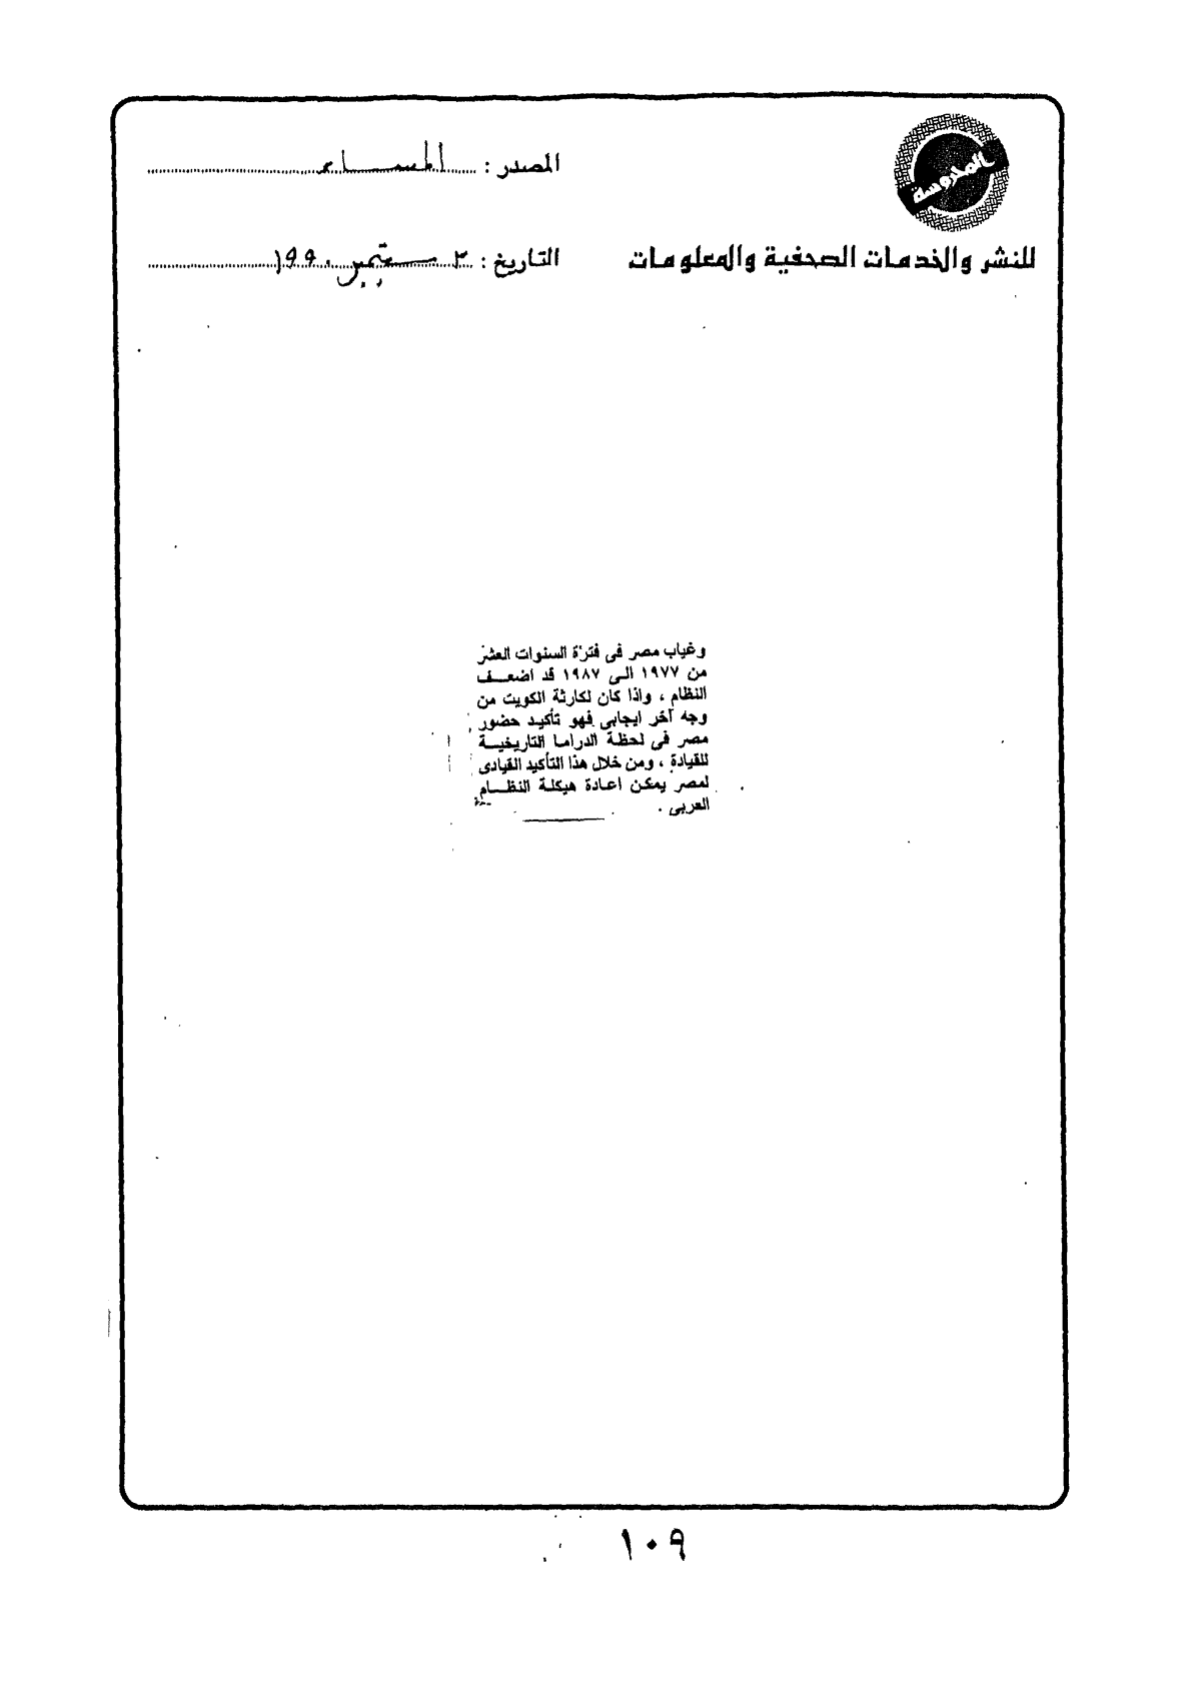 المحروسة
للنشر والخدمات الصحفية والمعلومات
المصدر : المساء
التاريخ : ٢ سبتمبر ١٩٩٠
وغياب مصر فى فترة السنوات العشر
من ١٩٧٧ الى ١٩٨٧ قد اضعف
النظام ، واذا كان لكارثة الكويت من
وجه آخر ايجابى فهو تأكيد حضور
مصر فى لحظة الدراما التاريخية
للقيادة ، ومن خلال هذا التأكيد القيادى
لمصر يمكن اعادة هيكلة النظام
العربى .
١٠٩